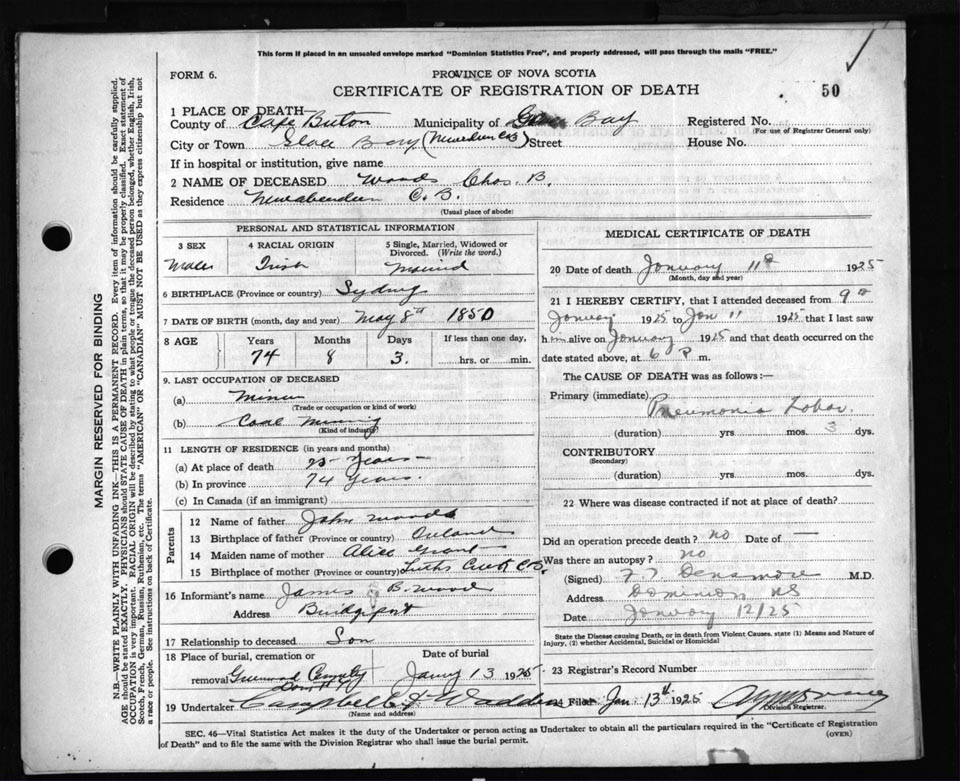 This form if placed in an unsealed envelope marked "Dominion Statistics Free", and properly addressed, will pass through the mails "FREE."
FORM 6.
PROVINCE OF NOVA SCOTIA
CERTIFICATE OF REGISTRATION OF DEATH
50
1 PLACE OF DEATH—
County of Cape Breton Municipality of Glace Bay Registered No.
(For use of Registrar General only)
City or Town Glace Bay Street House No.
If in hospital or institution, give name
2 NAME OF DECEASED Woods Chas. B.
Residence Newaberdeen C. B.
(Usual place of abode)
PERSONAL AND STATISTICAL INFORMATION
3 SEX
Male
4 RACIAL ORIGIN
Irish
5 Single, Married, Widowed or Divorced. (Write the word.)
Married
6 BIRTHPLACE (Province or country) Sydney
7 DATE OF BIRTH (month, day and year) May 8th 1850
8 AGE Years Months Days If less than one day,
74 8 3. hrs. or min.
9. LAST OCCUPATION OF DECEASED
(a) Miner
(Trade or occupation or kind of work)
(b) Coal Mining
(Kind of industry)
11 LENGTH OF RESIDENCE (in years and months)
(a) At place of death years
(b) In province 74 years.
(c) In Canada (if an immigrant)
Parents
12 Name of father John Woods
13 Birthplace of father (Province or country) Ireland
14 Maiden name of mother Alice Grant
15 Birthplace of mother (Province or country) Creek C.B.
16 Informant's name James B. Woods
Address Bridgeport
17 Relationship to deceased Son
18 Place of burial, cremation or Date of burial
removal Greenwood Cemetery Jany 13 1925
19 Undertaker Campbell & Wadden
(Name and address)
MEDICAL CERTIFICATE OF DEATH
20 Date of death January 11th 1925
(Month, day and year)
21 I HEREBY CERTIFY, that I attended deceased from 9th
January 1925 to Jan 11 1925 that I last saw
him alive on January 1925 and that death occurred on the
date stated above, at 6 P. m.
The CAUSE OF DEATH was as follows:—
Primary (immediate) Pneumonia Lobar.
(duration) yrs mos. 3 dys.
CONTRIBUTORY
(Secondary)
(duration) yrs. mos. dys.
22 Where was disease contracted if not at place of death?
Did an operation precede death? no Date of —
Was there an autopsy? no
(Signed) Densmore M.D.
Address Dominion NS
Date January 12/25
State the Disease causing Death, or in death from Violent Causes, state (1) Means and Nature of Injury, (2) whether Accidental, Suicidal or Homicidal
23 Registrar's Record Number
24 Filed Jan. 13th 1925
Division Registrar.
SEC. 46—Vital Statistics Act makes it the duty of the Undertaker or person acting as Undertaker to obtain all the particulars required in the "Certificate of Registration of Death" and to file the same with the Division Registrar who shall issue the burial permit.
(OVER)
MARGIN RESERVED FOR BINDING
N.B.—WRITE PLAINLY WITH UNFADING INK—THIS IS A PERMANENT RECORD. Every item of information should be carefully supplied.
AGE should be stated EXACTLY. PHYSICIANS should STATE CAUSE OF DEATH in plain terms, so that it may be properly classified. Exact statement of
OCCUPATION is very important. RACIAL ORIGIN will be described by stating to what people or tongue the deceased person belonged, whether English, Irish,
Scotch, French, German, Russian, Ruthenian, etc. The terms "AMERICAN" OR "CANADIAN" MUST NOT BE USED as they express citizenship but not
a race or people. See instructions on back of Certificate.